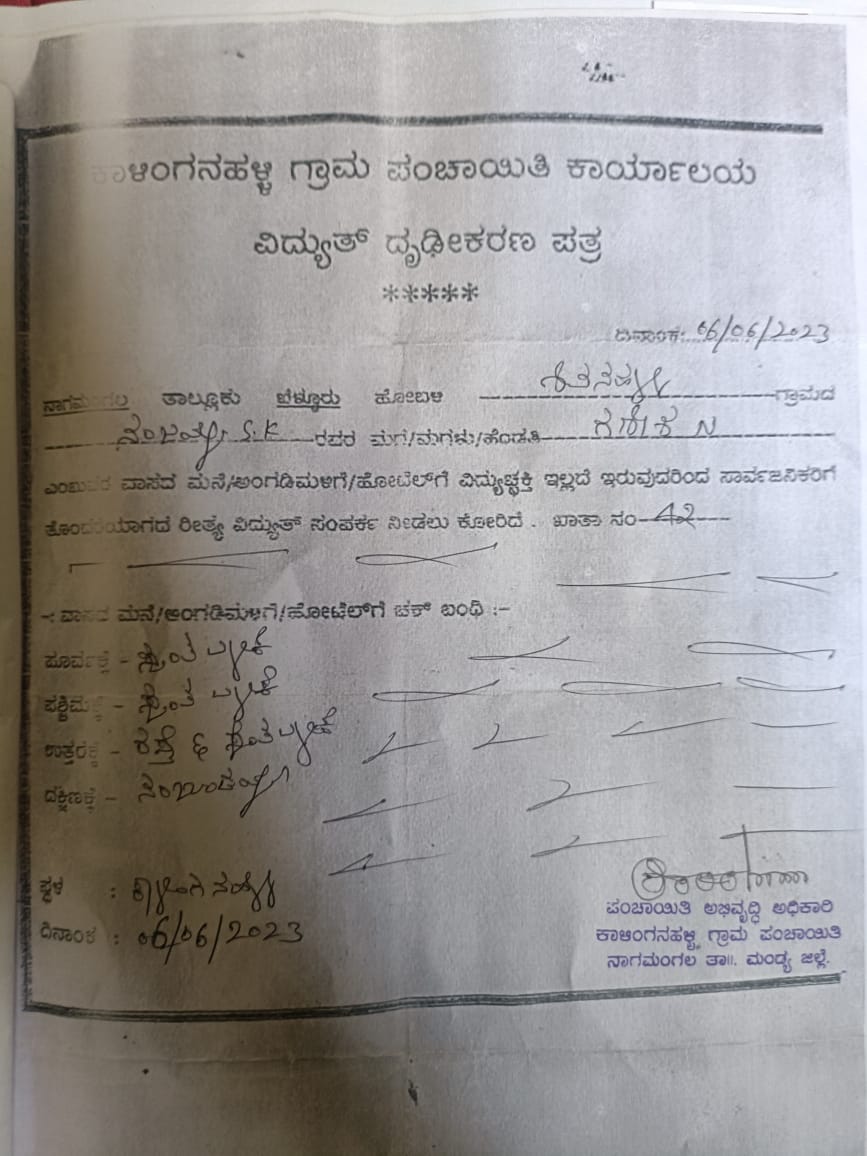 ಕಾಳಿಂಗನಹಳ್ಳಿ ಗ್ರಾಮ ಪಂಚಾಯಿತಿ ಕಾರ್ಯಾಲಯ
ವಿದ್ಯುತ್ ದೃಢೀಕರಣ ಪತ್ರ
*****
ದಿನಾಂಕ: 06/06/2023
ನಾಗಮಂಗಲ ತಾಲ್ಲೂಕು ಬೆಳ್ಳೂರು ಹೋಬಳಿ ಗ್ರಾಮದ
S.K ರವರ ಮಗ/ಮಗಳು/ಹೆಂಡತಿ N
ಎಂಬುವರ ವಾಸದ ಮನೆ/ಅಂಗಡಿಮಳಿಗೆ/ಹೋಟೆಲ್‌ಗೆ ವಿದ್ಯುಚ್ಛಕ್ತಿ ಇಲ್ಲದೆ ಇರುವುದರಿಂದ ಸಾರ್ವಜನಿಕರಿಗೆ
ತೊಂದರೆಯಾಗದ ರೀತ್ಯ ವಿದ್ಯುತ್ ಸಂಪರ್ಕ ನೀಡಲು ಕೋರಿದೆ. ಖಾತಾ ನಂ 42
-: ವಾಸದ ಮನೆ/ಅಂಗಡಿಮಳಿಗೆ/ಹೋಟೆಲ್‌ಗೆ ಚೆಕ್ ಬಂಧಿ :-
ಪೂರ್ವಕ್ಕೆ - ಸ್ವಂತ
ಪಶ್ಚಿಮಕ್ಕೆ - ಸ್ವಂತ
ಉತ್ತರಕ್ಕೆ - ರಸ್ತೆ
ದಕ್ಷಿಣಕ್ಕೆ -
ಸ್ಥಳ : ಕಾಳಿಂಗನಹಳ್ಳಿ
ದಿನಾಂಕ : 06/06/2023
ಪಂಚಾಯಿತಿ ಅಭಿವೃದ್ಧಿ ಅಧಿಕಾರಿ
ಕಾಳಿಂಗನಹಳ್ಳಿ ಗ್ರಾಮ ಪಂಚಾಯಿತಿ
ನಾಗಮಂಗಲ ತಾ॥. ಮಂಡ್ಯ ಜಿಲ್ಲೆ.